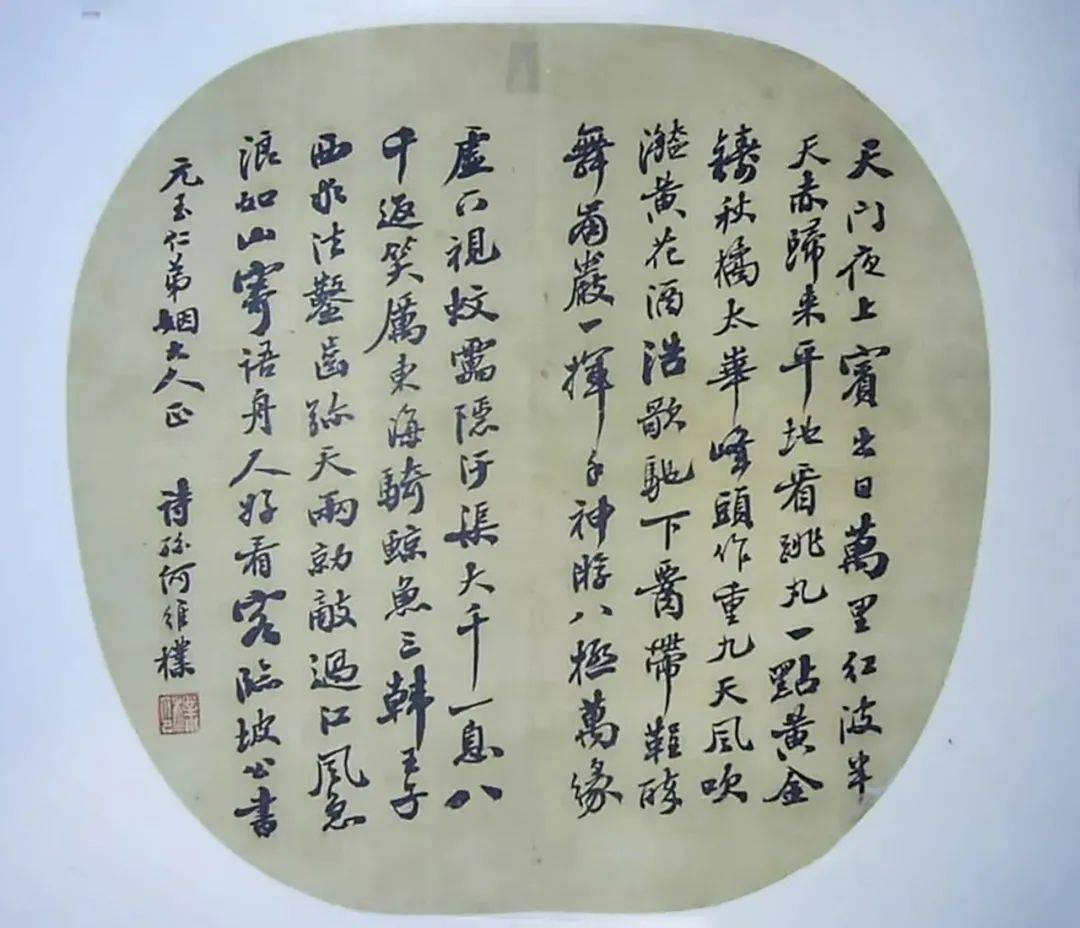 天门夜上賓出日萬里红波半
天赤歸来平地看跳丸一點黄金
鑄秋橘太華峰頭作重九天風吹
灎黄花酒浩歌馳下腰帶鞓醉
舞崩巖一揮手神游八極萬缘
虚下視蚊靁隱污渠大千一息八
十返笑厲東海騎鯨魚三韩王子
西求法鑿齒弥天兩勍敵過江風急
浪如山寄語舟人好看客臨坡公書
元玉仁弟姻大人正 詩孫何維樸